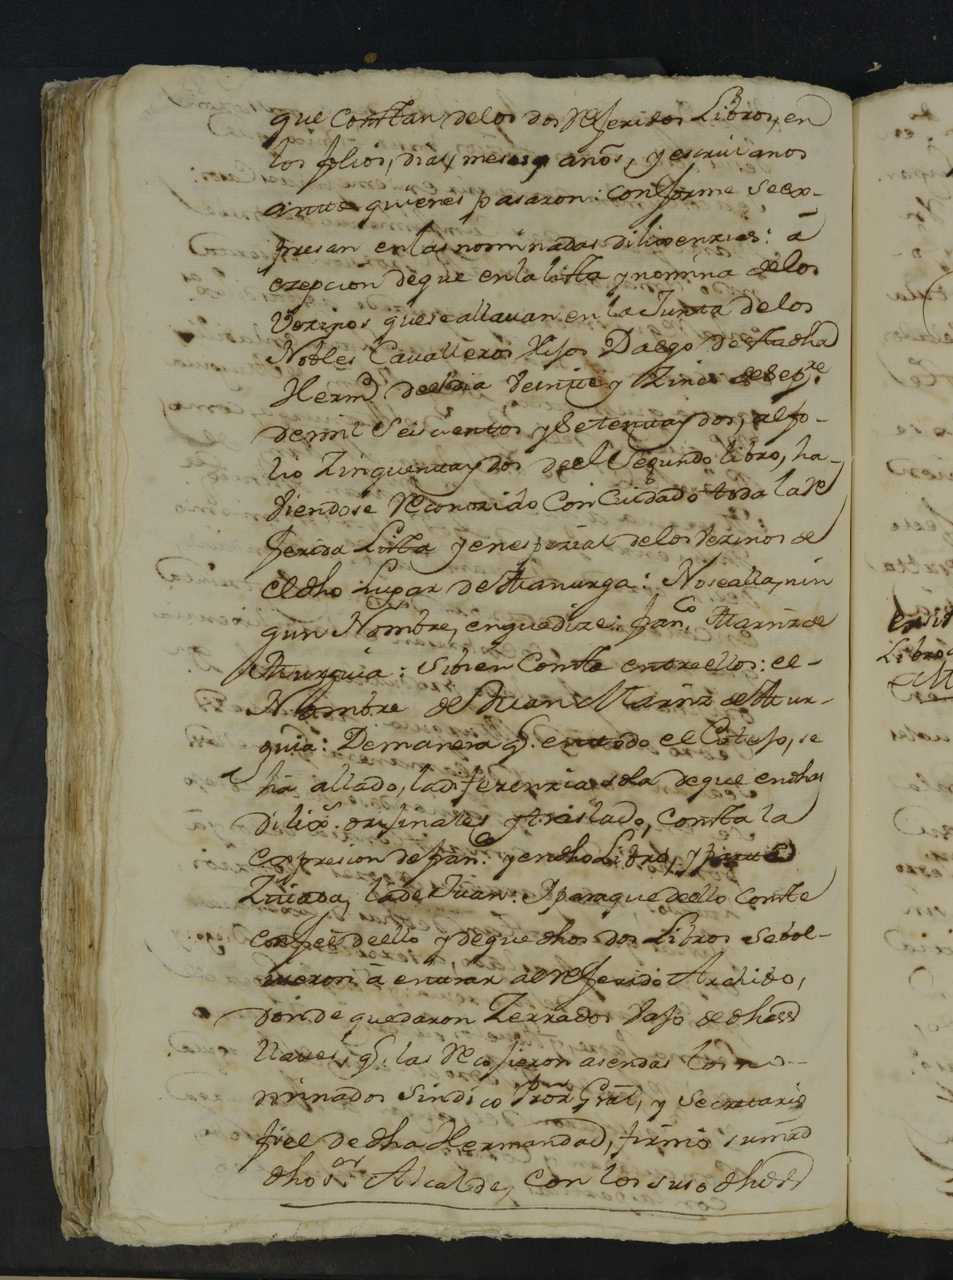 que constan delos dos Referidos Libros, en
los folios, dias, meses y años, y escrivanos
ante quienes pasaron: conforme seex-
presan enlas nominadas dilixenzias: â
ezepcion deque enla lista y nomina delos
Vezinos queseallavan en la Junta delos
Nobles Cavalleros Hijos Dalgo de stadha
Hermd. deeldia Veinte y Zinco de Sepre.
demil Seiscientos y Setenta y dos, alfo-
lio Zinquenta y dos deel Segundo libro, ha-
viendose Reconozido Con Cuidado toda la Re
ferida Lista y en espezial delos Vezinos de
el dho Lugar de Manurga: Nosealla, nin
gun Nombre, enquedize: franco. Marnz de
Murguia: Sibien Conste entre ellos: el-
Nombre de Juan Marnz de Mur-
guia: Demanera q. entodo el Cotejo, se
ha allado, ladiferenzia sola deque endhas
Dilixs. orijinales y traslado, consta la
expresion de franco. y endho Libro, y
Zitada, lade Juan: Y paraque dello Conste
deello y deque dhos dos Libros sebol-
vieron â entrar enel referido Archibo,
donde quedaron Zerrados vajo de dhas
llaves, q. las Recojieron asendas los no-
minados Sindico Pror. Gral, y Secretario
fiel de dha Hermandad, firmó sumrd
dho Sor. Alcalde, con los suso dhos